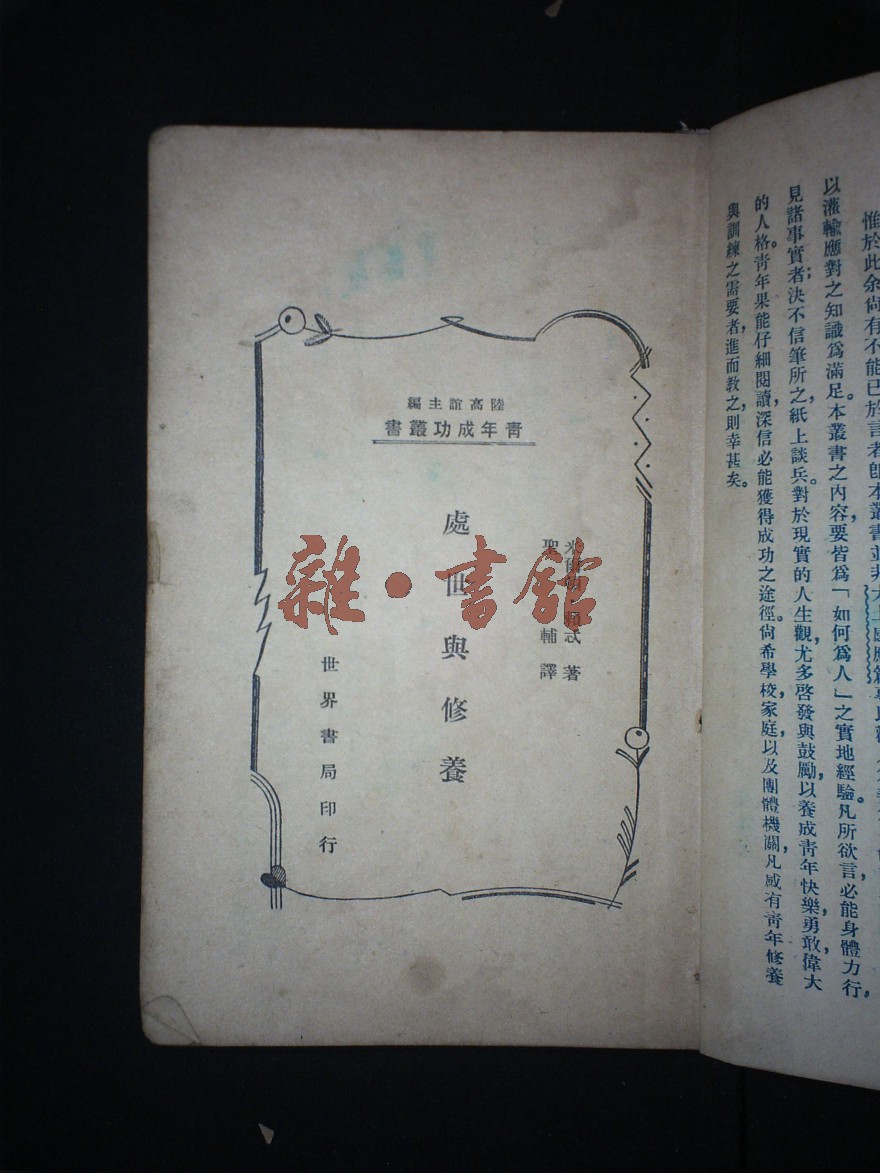 惟於此余尙有不能已於言者卽本叢書並非
以灌輸應對之知識爲滿足。本叢書之內容,要皆爲「如何爲人」之實地經驗。凡所欲言必能身體力行,
見諸事實者;決不信筆所之,紙上談兵。對於現實的人生觀,尤多啓發與鼓勵,以養成靑年快樂勇敢偉大
的人格。靑年果能仔細閱讀,深信必能獲得成功之途徑。尙希學校家庭,以及團體機關,凡感有靑年修養
與訓練之需要者,進而敎之,則幸甚矣。
陸高誼主編
靑年成功叢書
著
聖輔譯
處世與修養
世界書局印行
雜·書館